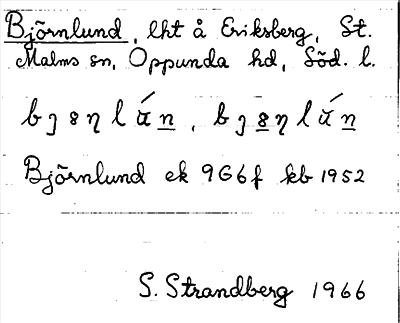 Björnlund, lht å Eriksberg, St.
Malms sn, Oppunda hd, Söd. l.
Björnlund ek 9G6f kb 1952
S. Strandberg 1966